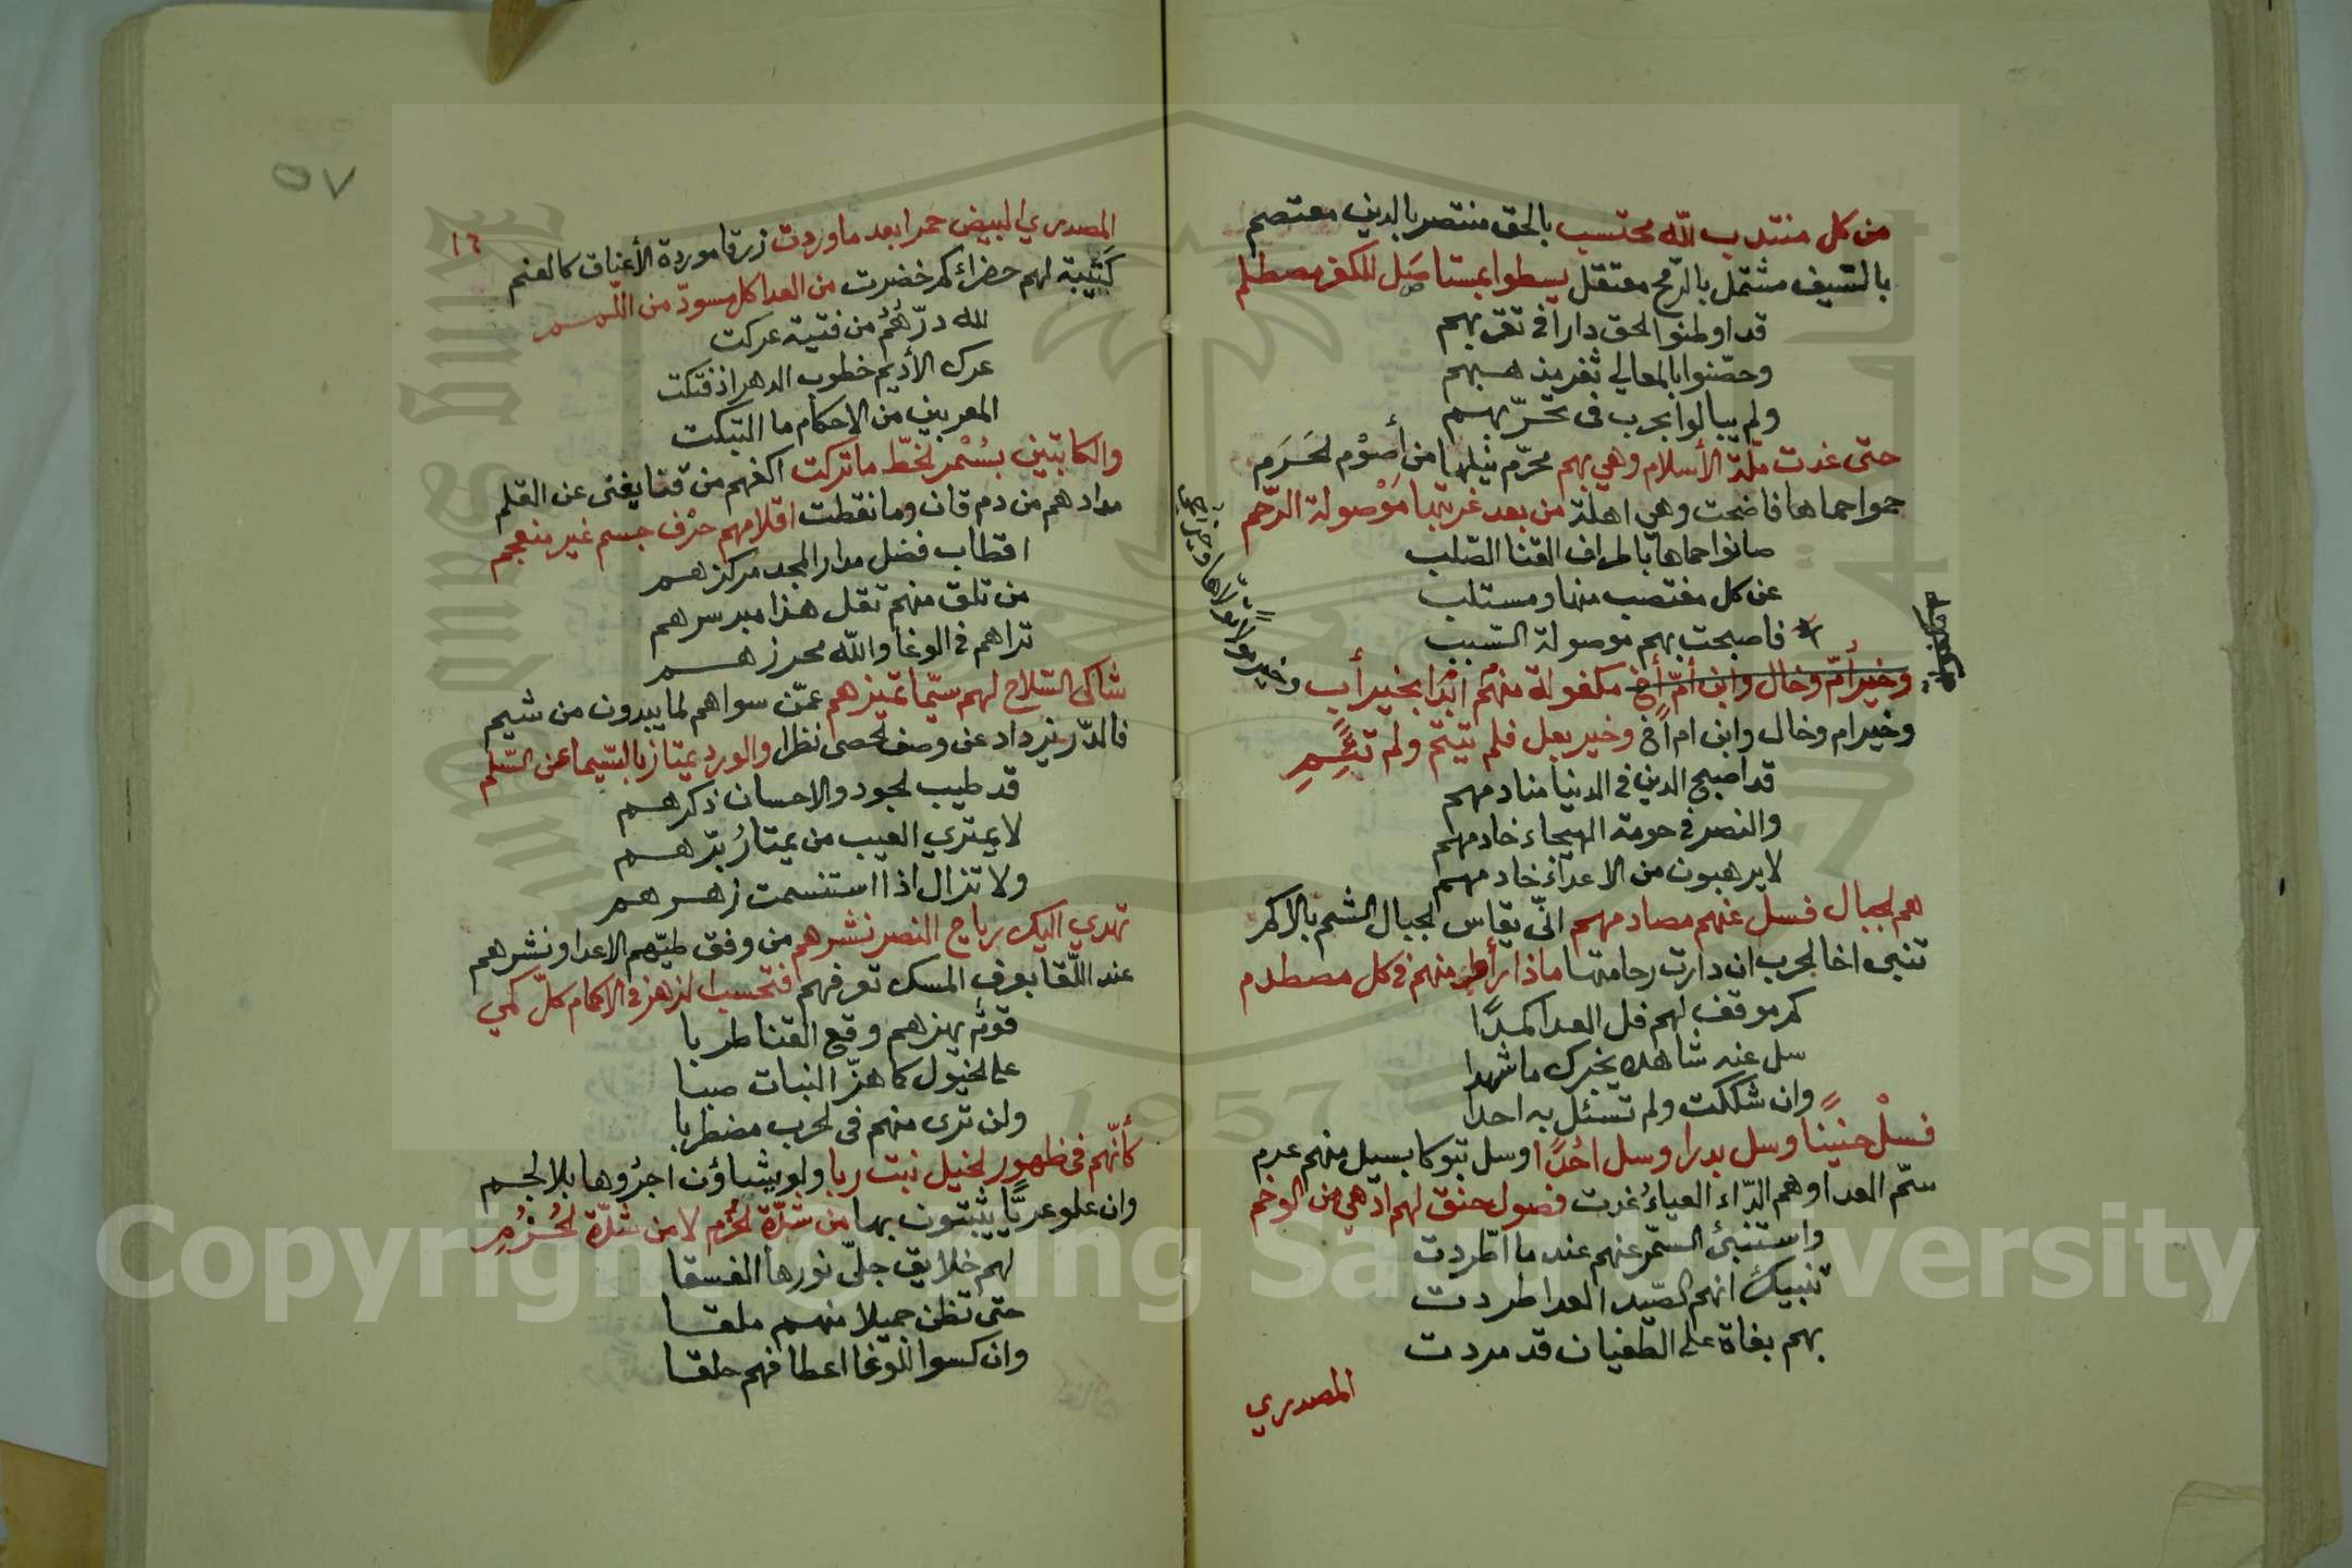 من كل منتدب لله محتسب بالحق منتصر بالدين معتصم
بالسيف مشتمل بالرمح معتقل يسطوا بمستأصل للكفر مصطلم
قد اوطنوا الحق دارا في تقربهم
وحصّنوا بالمعالي ثغر مذهبهم
ولم يبالوا بحرب في تحرّبهم
حتى غدت ملّة الأسلام وهي بهم محرّم نيلها من أصوْم الحَرَم
حموا حماها فاضحت وهي اهلة من بعد غربتها مَوْصولة الرّحم
صانوا حماها باطراف القنا الصّلب
عن كل مغتصب منها ومستلب
فاصبحت بهم موصولة السّبب
وخير أمّ وخال وابن أمّ أخ مكفولة منهُم ابدًا بخير أب
وخير ام وخال وابن ام أخ وخير بعل فلم تيتم ولم تئم
قد اصبح الدين في الدنيا منادمهم
والنصر في حومة الهيجاء خادمهم
لا يرهبون من الاعداء خادمهم
هم الجبال فسل عنهم مصادمهم انّى يقاس الجبال الشم بالاكم
تنبى اخا الحرب ان دارت رحا منها ماذا رأى منهم في كل مصطدم
كم موقف لهم فل العدا كمدًا
سل عنه شاهده يخبرك ما شهدا
وان شككت ولم تسئل به احدا
فسلْ حنينًا وسل بدرا وسل احُدًا وسل تبوكا بسيل منهم عرم
سمّ العدا وهم الدّاء العياءُ غدت فصول حنق لهم ادهي من الوخم
واستنبئ السمّر عنهم عند ما اطّردت
تنبيك انهم الصّيد العدا طردت
بهم بغاة على الطغيان قد مردت
المصدري
٥٧
١٦
المصدري البيض حمرا بعد ما وردت زرقا موردة الأعناق كالعنم
كَتيبة لهم خضراء كم خضرت من العدا كل مسودّ من اللّمم
لله درّهُمُ من فتية عركت
عرك الأديم خطوب الدهر اذ فتكت
المعربين من الاحكام ما التبكت
والكاتبين بسُمْر الخطّ ما تركت اكفهم من قنا يغنى عن القلم
مدادهم من دم قان وما نقطت اقلامهم حرْف جسم غير منعجم
اقطاب فضل مدار المجد مركزهم
من تلق منهم تقل هذا مبرسرهم
تراهم في الوغا والله محرزهم
شاكى السّلاح لهم سيّما تميزهم عمّن سواهم لما يبدون من شيم
فالدّر يزداد عن وصف الحصى نظرا والورد يمتاز بالسّيما عن السّلم
قد طيب الجود والاحسان ذكرهم
لا يمتري العيب من يمتارُ بّرهم
ولا تزال اذا استنسمت زهرهم
تهدي اليك رياح النصر نشرهم من وفق طيّهم الاعدا ونشرهم
عند اللّقا بعرف المسك تعرفهم فتحسب الزهر في الاكمام كلّ كمي
قومٌ يهزهم وقع القنا طربا
على الخيول كما هزّ النبات صبا
ولن ترى منهم فى الحرب مضطربا
كأنّهم في ظهور الخيل نبت ربا ولو يشاؤن اجرُوها بلا لجم
وان علو عريًّا يثبتون بها من شدّة الحَزم لا من شدّة الحُزُم
لهم خلايق جلّى نورها الغسقا
حتى تظن جميلا منهم ملقا
وان كسوا للوغا اعطافهم حلقا